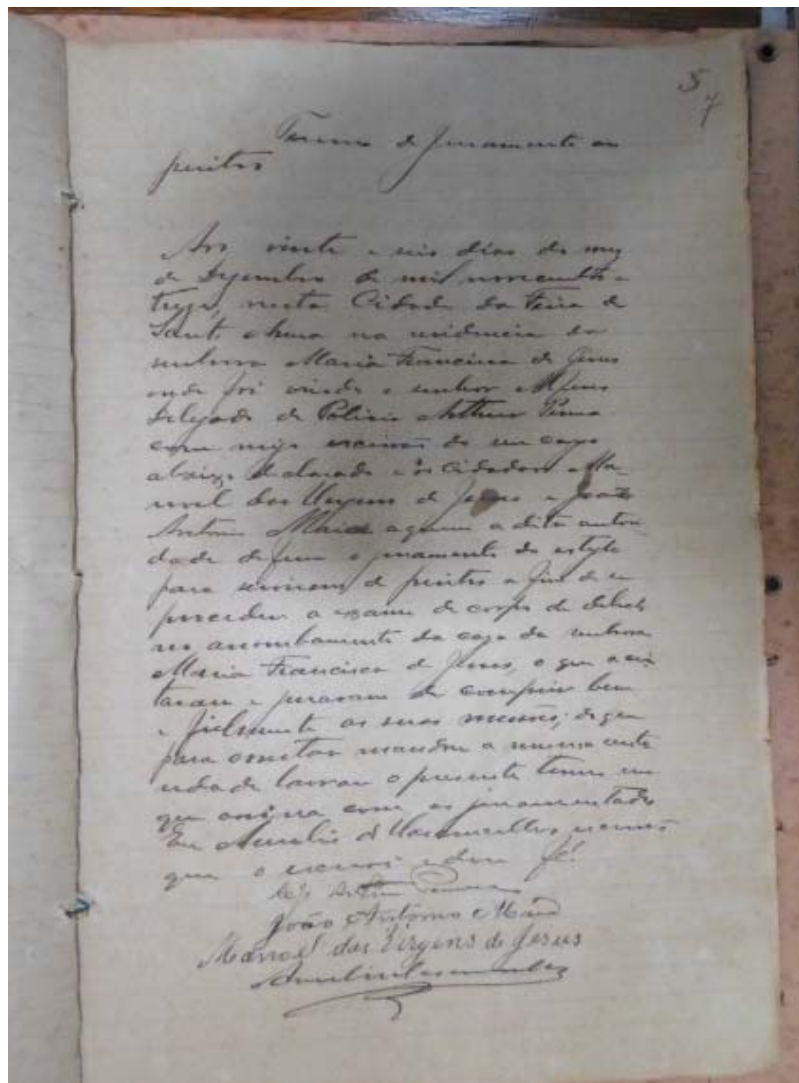 5
7
Termo de Juramento aos
peritos
Aos vinte e seis dias do mez
de Dezembro de mil novecentos e
treze, nesta Cidade da Feira de
Sant'Anna na residencia da
senhora Maria Francisca de Jesus
onde foi vindo o senhor
Delegado de Policia Arthur
commigo escrivão do seu cargo
abaixo declarado e os Cidadãos Ma-
noel das Virgens de Jesus e João
Antonio Maia a quem a dita autori-
dade deferiu o juramento do estylo
para servirem de peritos a fim de se
proceder a exame de corpo de delicto
no arrombamento da casa da senhora
Maria Francisca de Jesus, o que acei-
taram e juraram de cumprir bem
e fielmente as suas missões; do que
para constar mandou a mesma auto
ridade lavrar o presente termo em
que assigna com os juramentados
Eu Aurelio de Vasconcellos escrivão
que o escrevi e dou fé.
Arthur
João Antonio Maia
Manoel das Virgens de Jesus
Aurelio Vasconcellos